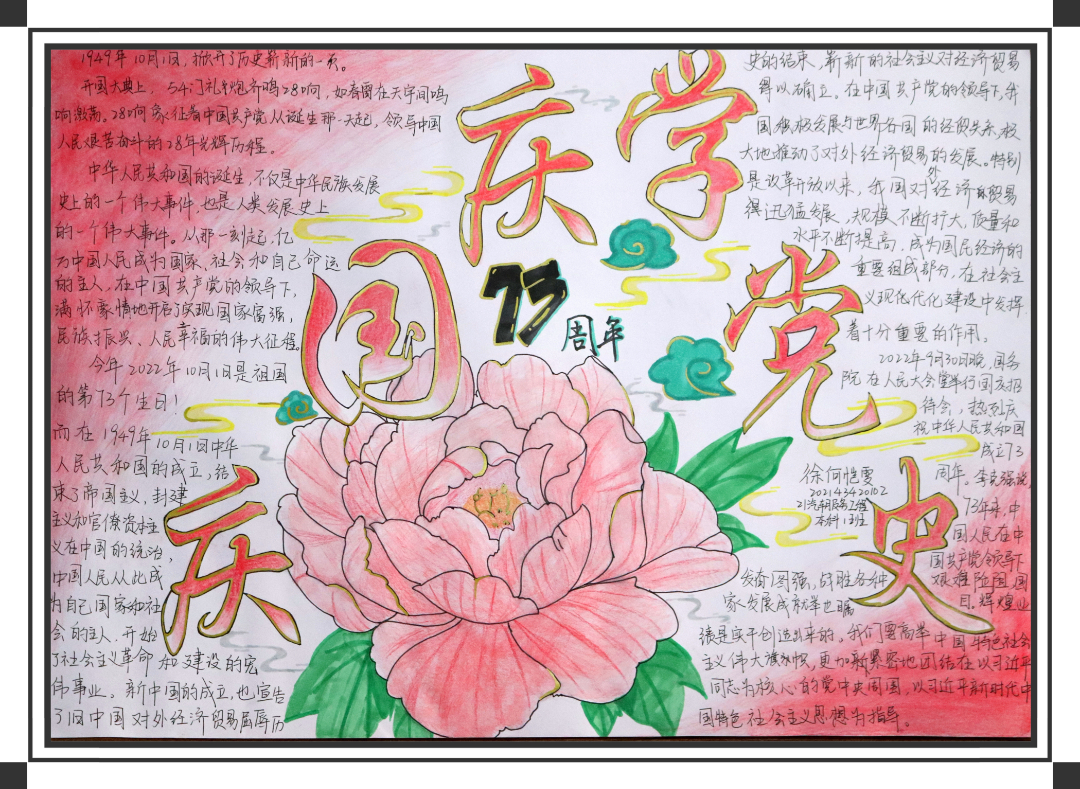 庆 学
国 党
庆 史
73
周年
1949年10月1日，掀开了历史新新的一页。
开国大典上，54门礼炮齐鸣28响，如春雷在天宇间鸣
响激荡。28响象征着中国共产党从诞生那一天起，领导中国
人民艰苦奋斗的28年光辉历程。
中华人民共和国的诞生，不仅是中华民族发展
史上的一个伟大事件，也是人类发展史上
的一个伟大事件。从那一刻起，亿
万中国人民成为国家、社会和自己命运
的主人，在中国共产党的领导下，
满怀豪情地开启了实现国家富强，
民族振兴、人民幸福的伟大征程。
今年2022年10月1日是祖国
的第73个生日！
而在1949年10月1日中华
人民共和国的成立，结
束了帝国主义，封建
主义和官僚资本主
义在中国的统治，
中国人民从此成
为自己国家和社
会的主人．开始
了社会主义革命和建设的宏
伟事业。新中国的成立，也宣告
了旧中国对外经济贸易屈辱历
史的结束，崭新的社会主义对经济贸易
得以确立。在中国共产党的领导下，我
国积极发展与世界各国的经贸关系，极
大地推动了对外经济贸易的发展。特别
是改革开放以来，我国对外经济贸易
得迅猛发展，规模不断扩大，质量和
水平不断提高，成为国民经济的
重要组成部分，在社会主
义现代化建设中发挥
着十分重要的作用。
2022年9月30日晚，国务
院在人民大会堂举行国庆招
待会，热烈庆
祝中华人民共和国
成立73
周年。李克强说，
73年来，中
国人民在中
国共产党领导下
发奋图强，战胜各种艰难险阻，国
家发展成就举世瞩目。辉煌业
绩是实干创造出来的。我们要高举中国特色社会
主义伟大旗帜，更加紧密地团结在以习近平
同志为核心的党中央周围，以习近平新时代中
国特色社会主义思想为指导。
徐何恺雯
本科1班